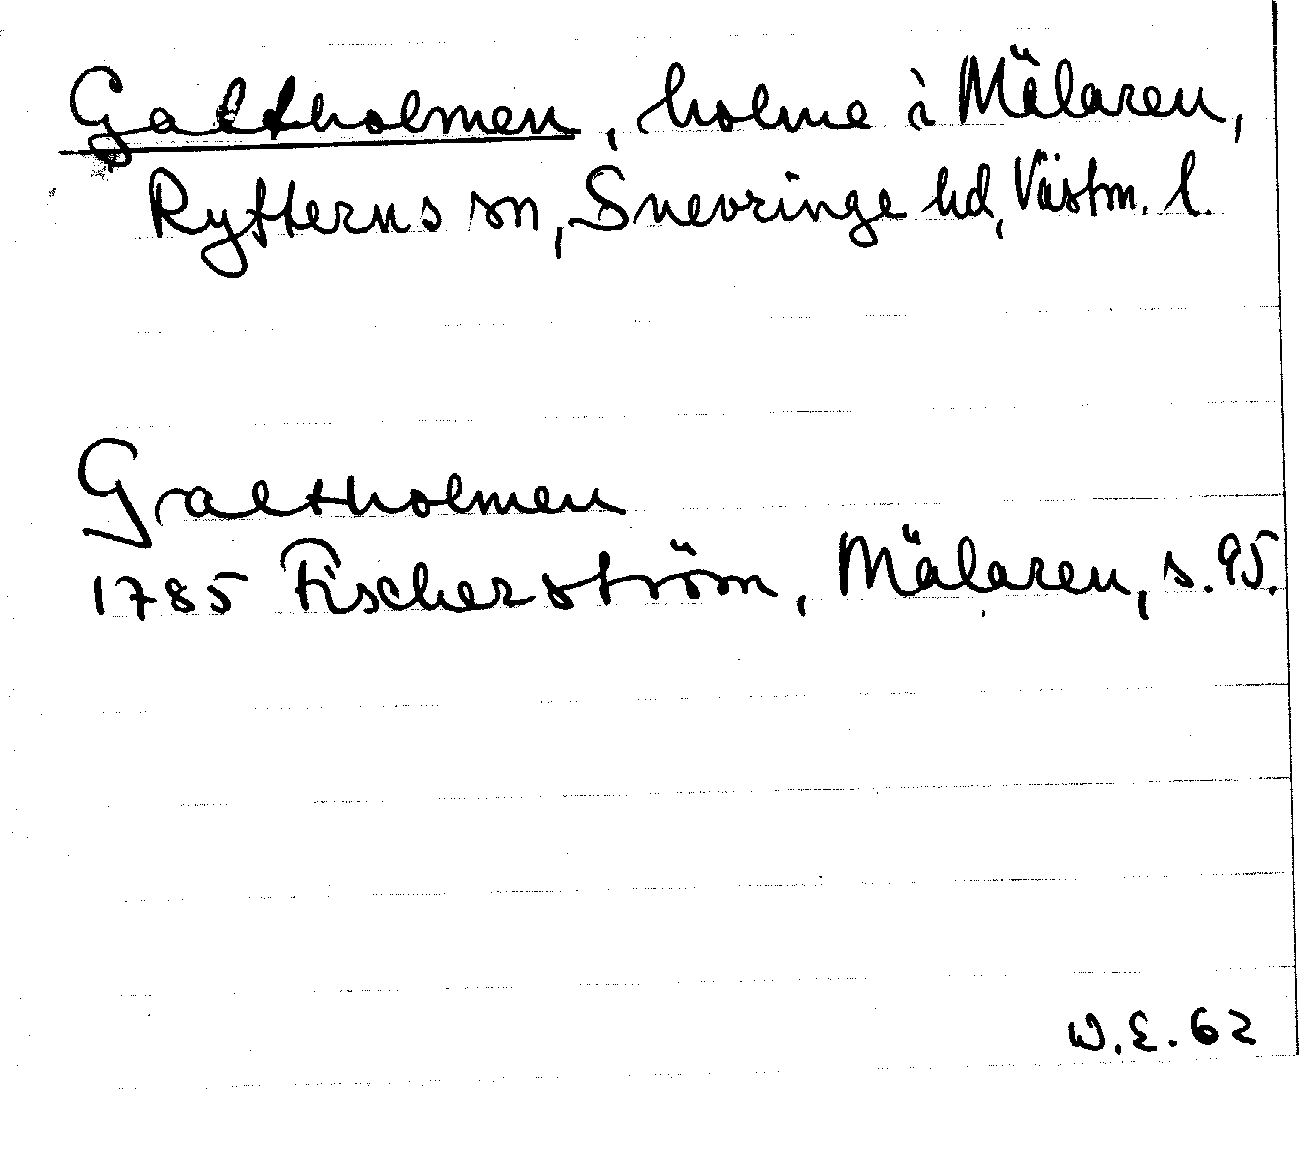 Galtholmen, holme i Mälaren,
Rytterns sn, Snevringe hd, Västm. l.
Galtholmen
1785 Fischerström, Mälaren, s. 95.
W.E. 62